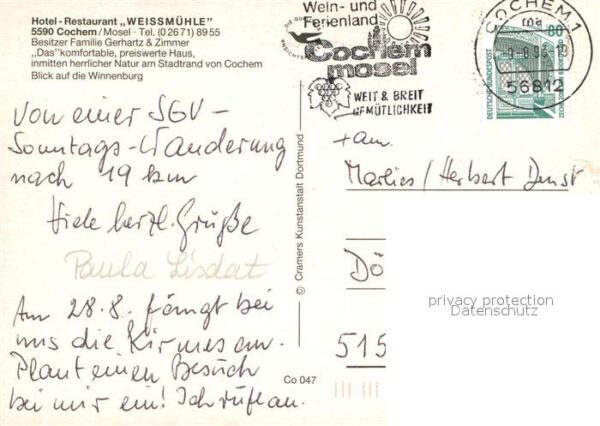 Hotel-Restaurant „WEISSMÜHLE"
5590 Cochem/Mosel · Tel. (02671) 8955
Besitzer Familie Gerhartz & Zimmer
„Das" komfortable, preiswerte Haus,
inmitten herrlicher Natur am Stadtrand von Cochem
Blick auf die Winnenburg
Von einer SGV-
Sonntags-Wanderung
nach 19 km
Viele herzl. Grüße
Paula Lisdat
Am 28.8. fängt bei
uns die Kirmes an.
Plant einen Besuch
bei mir ein! Ich rufe an.
© Cramers Kunstanstalt Dortmund
Co 047
Wein- und
Ferienland
Cochem
mosel
WEIT & BREIT
GEMÜTLICHKEIT
COCHEM 1
56812
80
DEUTSCHE BUNDESPOST
+ Fam.
Marlies / Herbert
Dö
515
privacy protection
Datenschutz